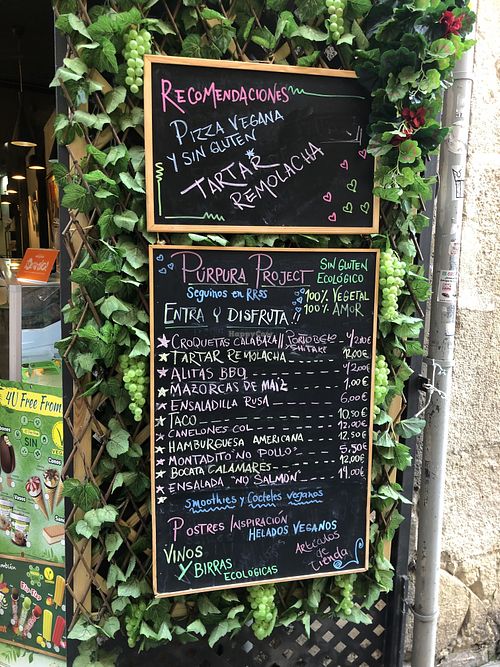 Recomendaciones
Pizza vegana
y sin gluten
Tartar
Remolacha
Púrpura Project
Sin Gluten
Ecológico
Seguinos en RRSS
100% Vegetal
100% Amor
Entra y disfruta!!
Croquetas calabaza // Portobelo
Shitake
Tartar Remolacha 12,00€
Alitas BBQ
Mazorcas de maíz 1,00€
Ensaladilla Rusa 6,00€
Taco 10,50€
Canelones col 12,00€
Hamburguesa Americana 12,50€
Montadito "no pollo" 5,50€
Bocata calamares 12,00€
Ensalada "no salmón" 14,00€
Smoothies y Cocteles veganos
Postres Inspiración
Helados Veganos
Vinos
y Birras
ecológicas
Artículos
de
Tienda
4U Free From
SIN
Conos
Vasos